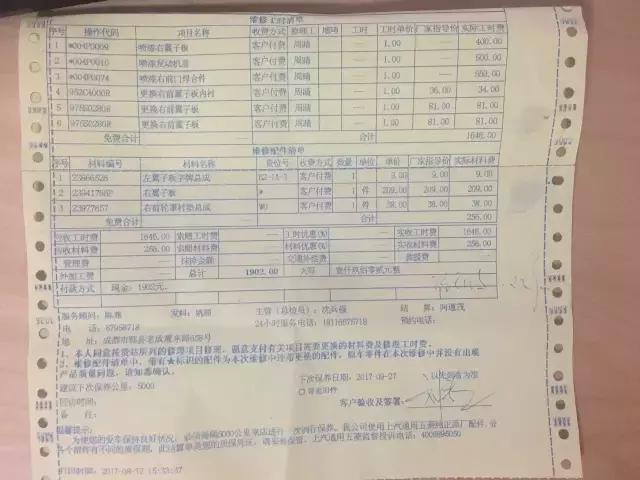 维修工时清单
序号 操作代码 项目名称 收费方式 修理工 增项 工时 工时单价 厂家指导价 实际工时费
1 *004P0009 喷漆右翼子板 客户付费 周靖 — 1.00 400.00
2 *004P0010 喷漆发动机盖 客户付费 周靖 — 1.00 500.00
3 *004P0074 喷漆右前门焊合件 客户付费 周靖 — 1.00 550.00
4 952C4000R 更换右前翼子板内衬 客户付费 周靖 — 1.00 36.00 34.00
5 975S0280R 更换右前翼子板 客户付费 周靖 — 1.00 81.00 81.00
6 975S0280R 更换右前翼子板 客户付费 周靖 — 1.00 81.00 81.00
免费合计 — 合计 1646.00
维修配件清单
序号 材料编号 材料名称 货位号 收费方式 数量 单位 单价 厂家指导价 实际材料费
1 23866528 左翼子板字牌总成 客户付费 1 9.00 9.00 9.00
2 右翼子板 客户付费 1 件 209.00 209.00 209.00
3 23977657 右前轮罩衬垫总成 客户付费 1 件 38.00 38.00 38.00
免费合计 — 合计 256.00
应收工时费 1646.00 索赔工时费 — 工时优惠(%) — 实收工时费 1646.00
应收材料费 256.00 索赔材料费 — 材料优惠(%) — 实收材料费 256.00
管理费 — 抹掉金额 — 交通补偿费 —
外加工费 — 总计 1902.00 大写 壹仟玖佰零贰元整
付款方式 现金: 1902元
服务顾问: 陈雅 发料: 主管(总检员): 沈兵强 结算: 阿道茂
电话: 87958718 24小时服务电话: 18116575718
地址: 成都市郫县老成灌东路658号
1、本人同意按贵站所列的修理项目修理，愿意支付有关项目需要更换的材料费及修理工时费。
2、维修配件清单中，带有*标识的配件为本次维修中注册更换的配件，但车零件在本次维修中并没有出现
产品质量问题，请知悉确认。
建议下次保养公里: 5000 下次保养日期: 2017-09-27
回访时间:
备注: 客户验收及签署:
温馨提示:
为使您的爱车保持良好状况，必须每隔5000公里来店进行一次例行保养。我公司使用上汽通用五菱纯正原厂配件，分
各个部件有不同的质保期，此结算单是您的质保凭证，请妥善保管。上汽通用五菱监督投诉电话: 4008895050
打印时间: 2017-08-12 15:33:37